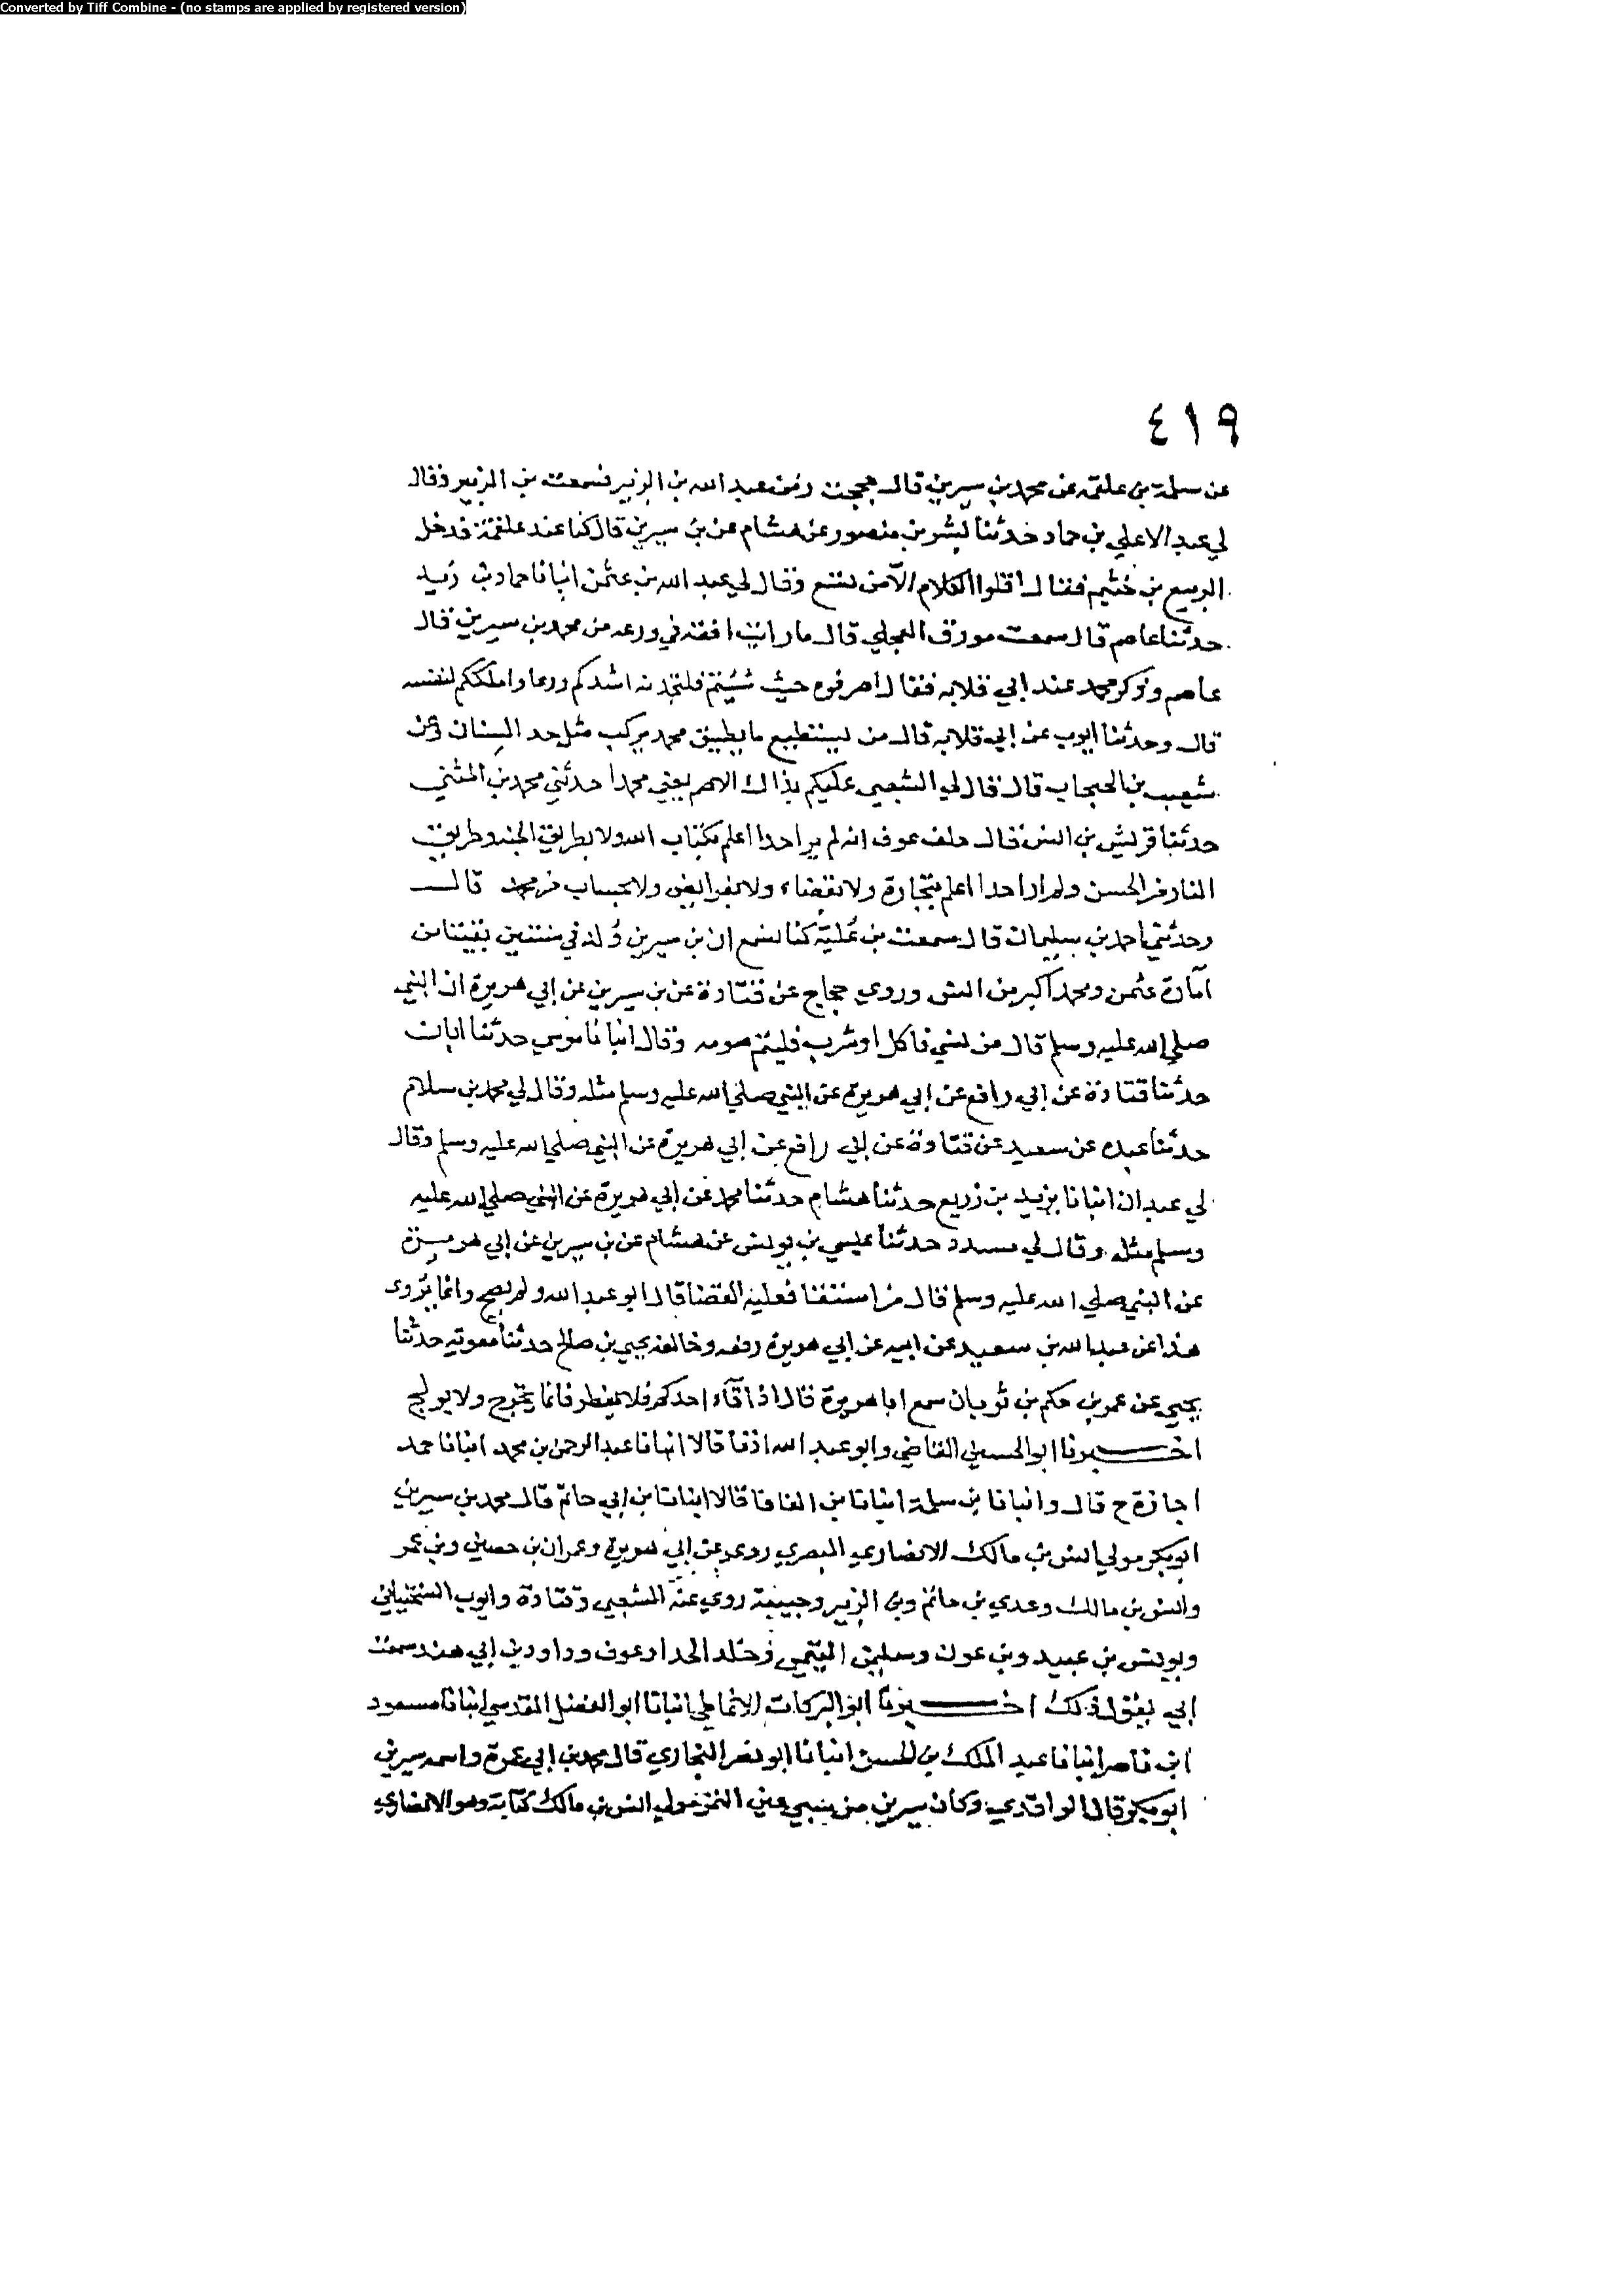 Converted by Tiff Combine - (no stamps are applied by registered version)
٤١٩
عن سلمة بن علقمة عن محمد بن سيرين قال حججت زمن عبد الله بن الزبير فسمعت بن الزبير وقال
لي عبد الاعلى بن حماد حدثنا بشر بن منصور عن هشام عن بن سيرين قال كنا عند علقمة فدخل
الربيع بن خثيم فقال اقلوا الكلام الا من تسع وقال لي عبد الله بن عثمن انبانا حماد بن زيد
حدثنا عاصم قال سمعت مورق العجلي قال ما رايت افقه في ورعه من محمد بن سيرين قال
عاصم وذكر محمد عند ابي قلابه فقال اصرفوه حيث شئتم فلتجدنه اشدكم ورعا واملككم لنفسه
قال وحدثنا ايوب عن ابي قلابه قال من يستطيع ما يطيق محمد يركب مثل حد السنان وعن
شعيب بن الحبحاب قال قال لي الشعبي عليكم بذاك الاصم يعني محمدا حدثني محمد بن المثني
حدثنا قريش بن انس قال حلف عوف انه لم ير احدا اعلم بكتاب الله ولا بطريق الجنه وطريق
النار من الحسن ولم ار احدا اعلم بتجارة ولا بقضاء ولا بفرايض ولا بحساب من محمد قال
وحدثني احمد بن سليمان قال سمعت بن علية كنا نسمع ان بن سيرين ولد في سنتين بقيتا من
امارة عثمن ومحمد اكبر من انس وروى حجاج عن قتادة عن بن سيرين عن ابي هريرة ان النبي
صلى الله عليه وسلم قال من نسي فاكل او شرب فليتم صومه وقال انبانا موسى حدثنا ابان
حدثنا قتادة عن ابي رافع عن ابي هريرة عن النبي صلى الله عليه وسلم مثله وقال لي محمد بن سلام
حدثنا عبده عن سعيد عن قتادة عن ابي رافع عن ابي هريرة عن النبي صلى الله عليه وسلم وقال
لي عبدان انبانا يزيد بن زريع حدثنا هشام حدثنا محمد عن ابي هريرة عن النبي صلى الله عليه
وسلم مثله وقال لي مسدد حدثنا عيسى بن يونس عن هشام عن بن سيرين عن ابي هريرة
عن النبي صلى الله عليه وسلم قال من استقا فعليه القضا قال ابو عبد الله ولم يصح وانما يروى
هذا عن عبد الله بن سعيد عن ابيه عن ابي هريرة رفعه وخالفه يحيى بن صالح حدثنا معوية حدثنا
يحيى عن عمر بن حكم بن ثوبان سمع ابا هريرة قال اذا قاء احدكم فلا يفطر فانما يخرج ولا يولج
اخبرنا ابو الحسين القاضي وابو عبد الله اذنا قالا انبانا عبد الرحمن بن محمد انبانا حمد
اجازة ح قال وانبانا بن سلمة انبانا بن الفافا قالا انبانا بن ابي حاتم قال محمد بن سيرين
ابو بكر مولى انس بن مالك الانصاري البصري روى عن ابي هريرة وعمران بن حصين وبن عمر
وانس بن مالك وعدي بن حاتم وبن الزبير وجبيبة روى عنه الشعبي وقتادة وايوب السختياني
ويونس بن عبيد وبن عون وسليمن التيمي وخلد الحدا وعوف وداود بن ابي هند سمعت
ابي يقول ذلك اخبرنا ابو البركات الانماطي انبانا ابو الفضل المقدسي انبانا مسعود
ابن ناصر انبانا عبد الملك بن الحسن انبانا ابو نصر البخاري قال محمد بن ابي عمرة واسمه سيرين
ابو بكر قال الواقدي وكان سيرين من سبي عين التمر مولى انس بن مالك كتابة وهو الانصاري